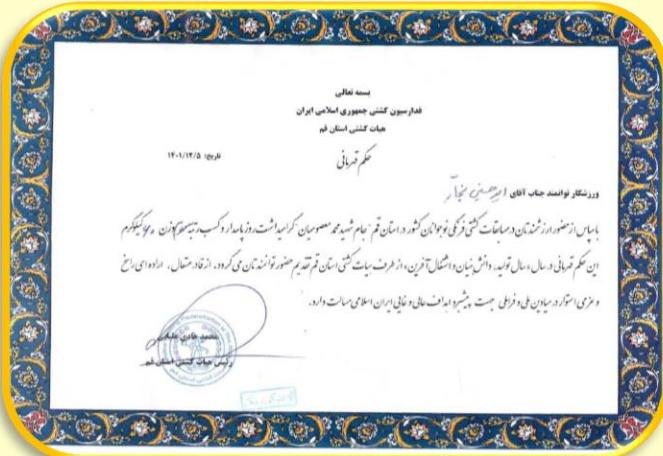 بسمه تعالی
فدارسیون کشتی جمهوری اسلامی ایران
هیات کشتی استان قم
تاریخ: ۱۴۰۱/۱۲/۵
حکم قهرمانی
ورزشکار توانمند جناب آقای امیرحسین
با سپاس از حضور ارزشمندتان در مسابقات کشتی فرنگی نوجوانان کشور در استان قم "جام شهید محمد معصومیان" گرامیداشت روز پاسدار و کسب رتبه سوم وزن کیلوگرم
این حکم قهرمانی در سال «سال تولید، دانش بنیان و اشتغال آفرین» از طرف هیات کشتی استان قم تقدیم حضور توانمندتان می گردد. از قادر متعال، اراده ای راسخ
و عزمی استوار در میادین ملی و فراملی جهت پیشبرد اهداف عالی و غایی ایران اسلامی مسالت دارد.
محمد هادی
رئیس هیات کشتی استان قم